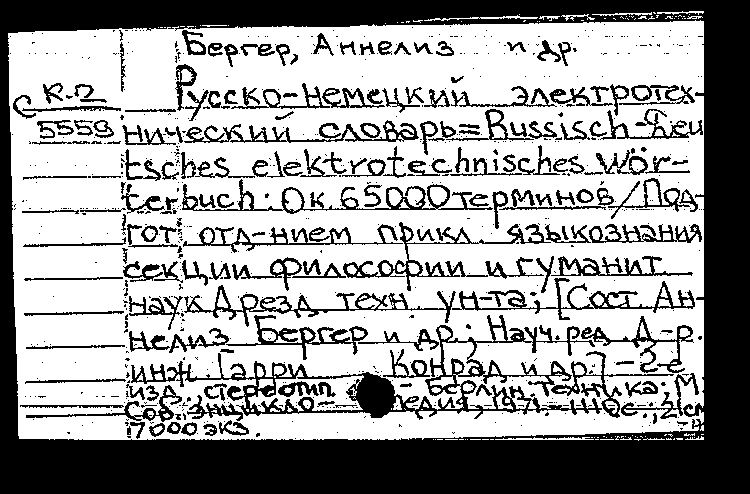 Бергер, Аннелиз и др.
К.П Русско-немецкий электротех-
5559 нический словарь=Russisch-deu
tsches elektrotechnisches Wör-
terbuch: Ок. 65000 терминов/Под-
гот. отд-нием прикл. языкознания
секции философии и гуманит.
наук Дрезд. техн. ун-та; [Сост. Ан-
нелиз Бергер и др.; Науч. ред. Д-р.
инж. Гарри Конрад и др.] - 2-е
изд., стереотип. - Берлин: Техника; М.:
Сов. энцикло- педия, 1971. - ; 21 см
17000 экз.